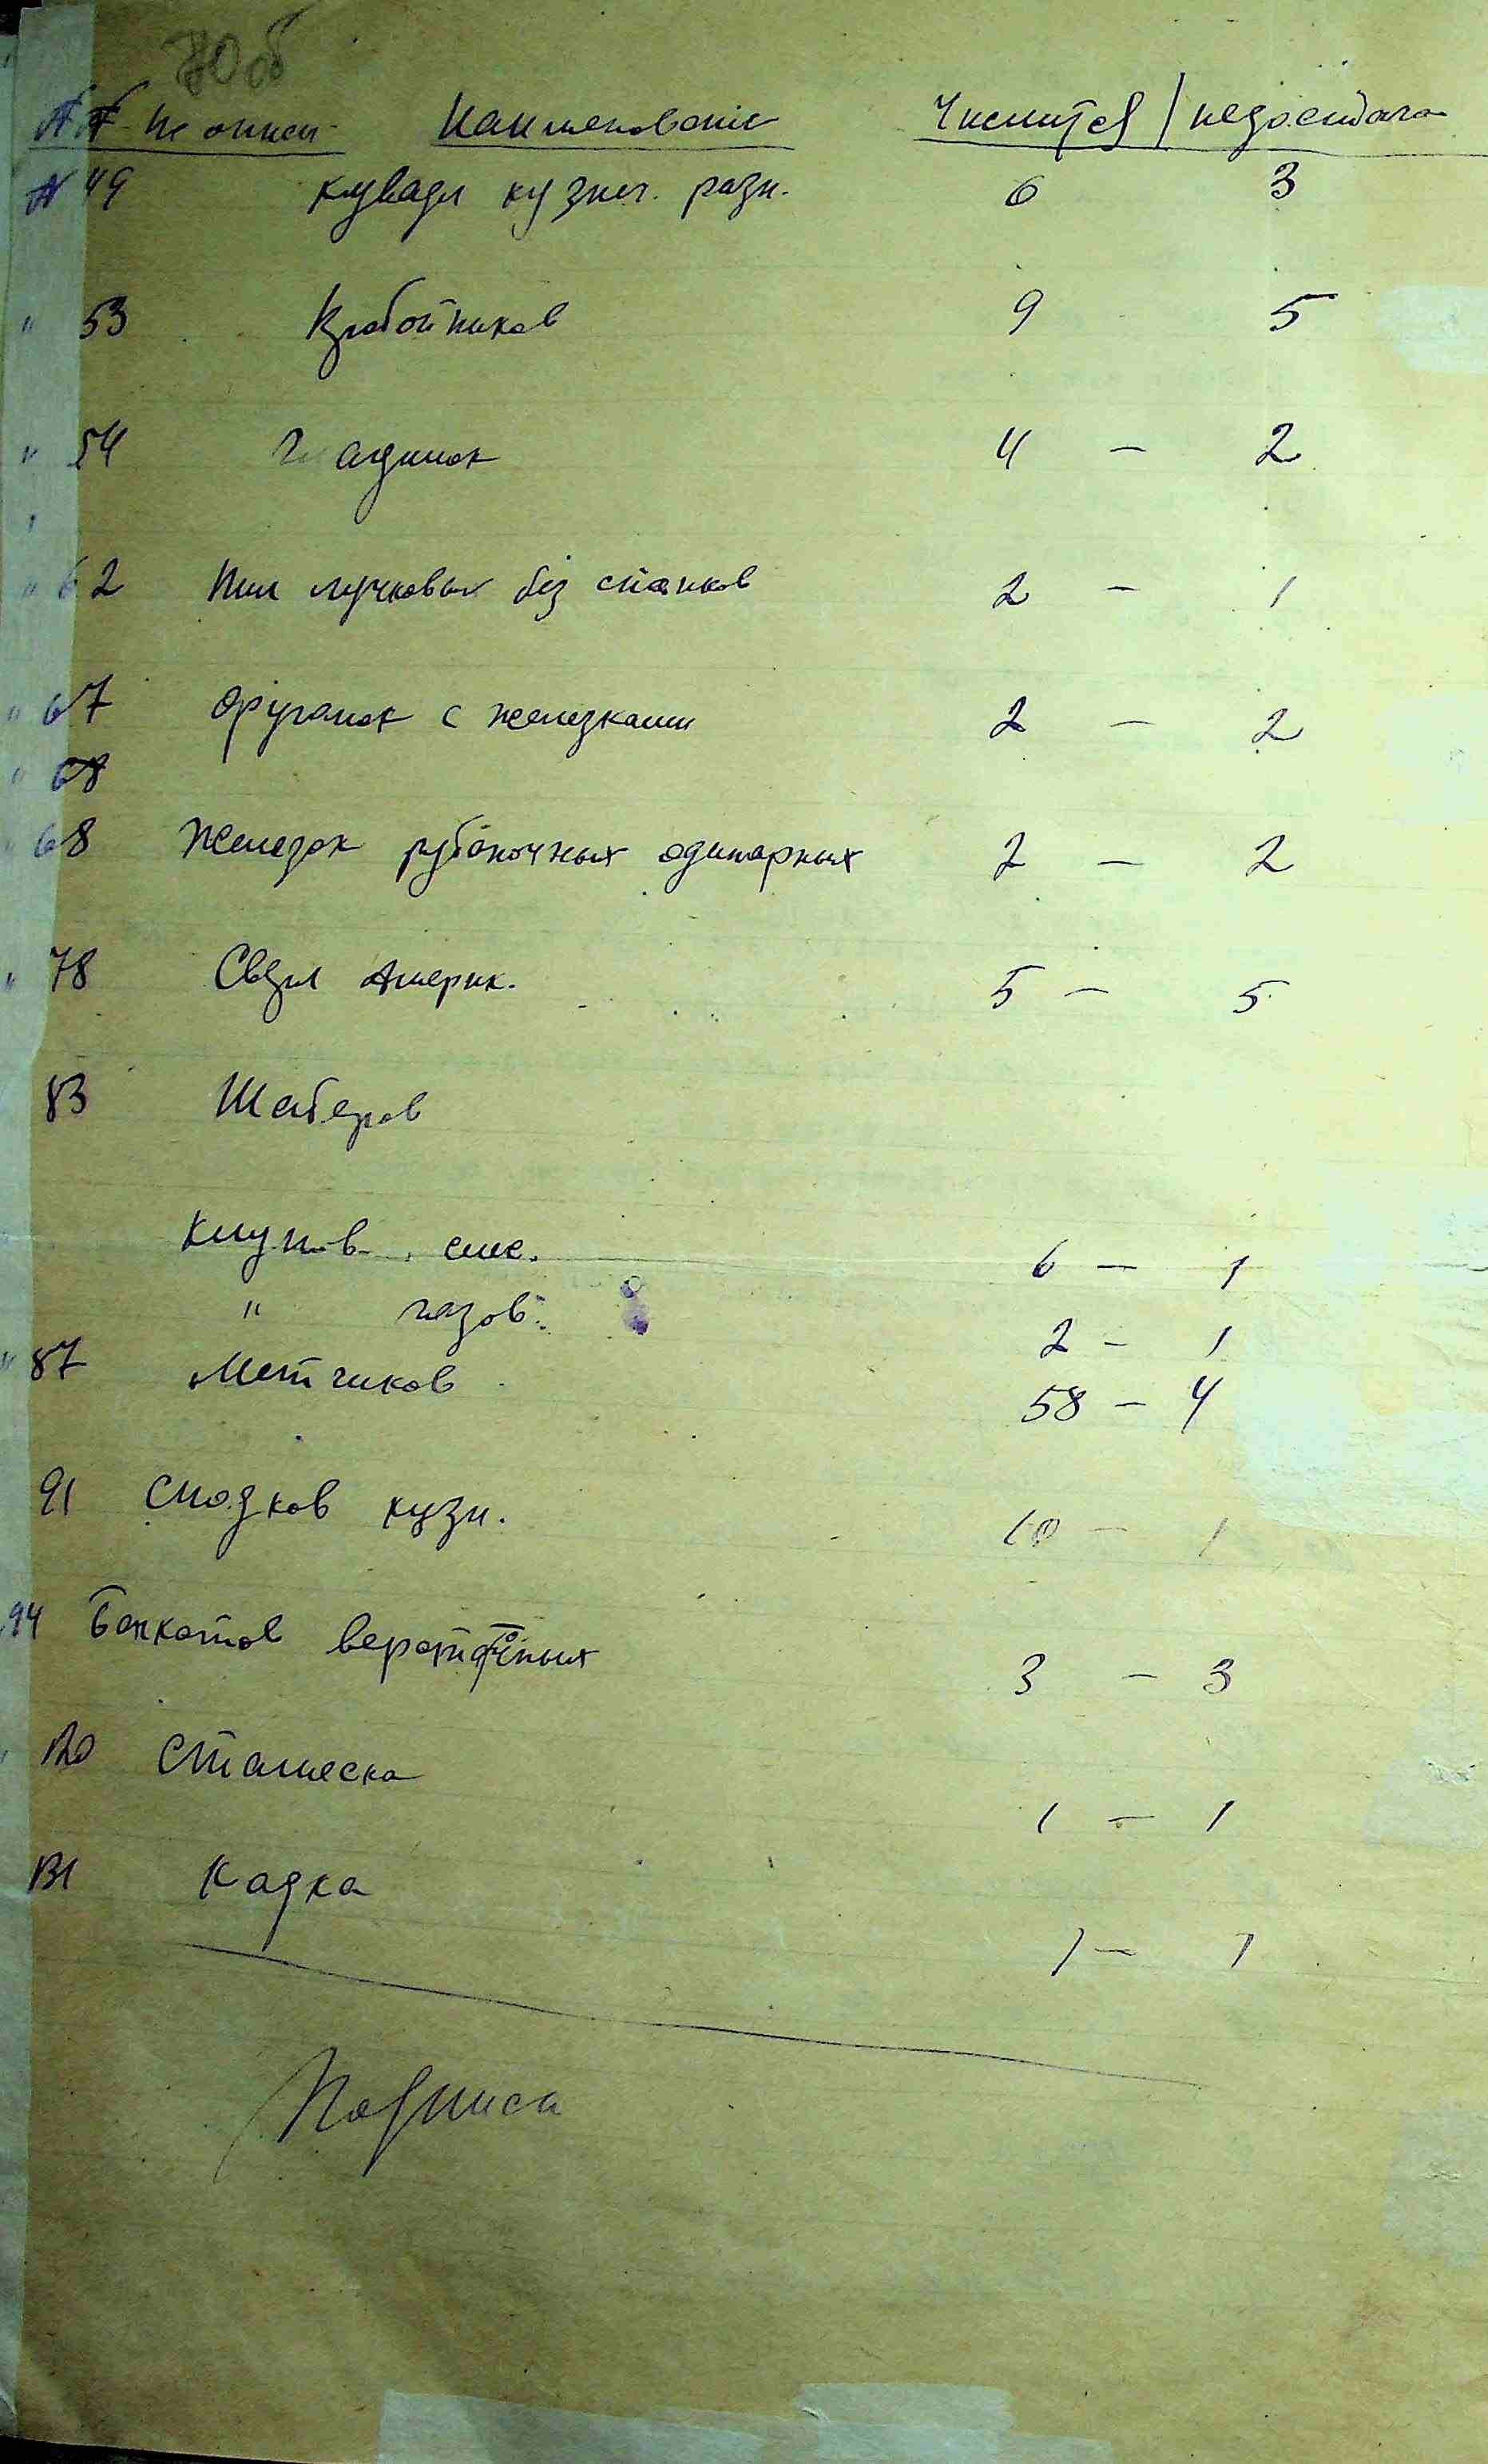 70об
№№ по описи Наименование Числится / недостача
№ 49 Кувалд кузнеч. разн. 6 3
" 53 Гвоздобойников 9 5
" 54 Гладилок 4 — 2
" 62 Пил лучковых без станков 2 — 1
" 67 Фуганок с железками 2 — 2
" 68
" 68 Железок рубаночных одинарных 2 — 2
" 78 Сверл Америк. 5 — 5
83 Шаберов
Клупов слес. 6 — 1
" газов. 2 — 1
" 87 Метчиков 58 — 4
91 Сподков кузн. 10 — 1
94 верстачных 3 — 3
120 Стамеска 1 — 1
131 Кадка 1 — 1
Подписи